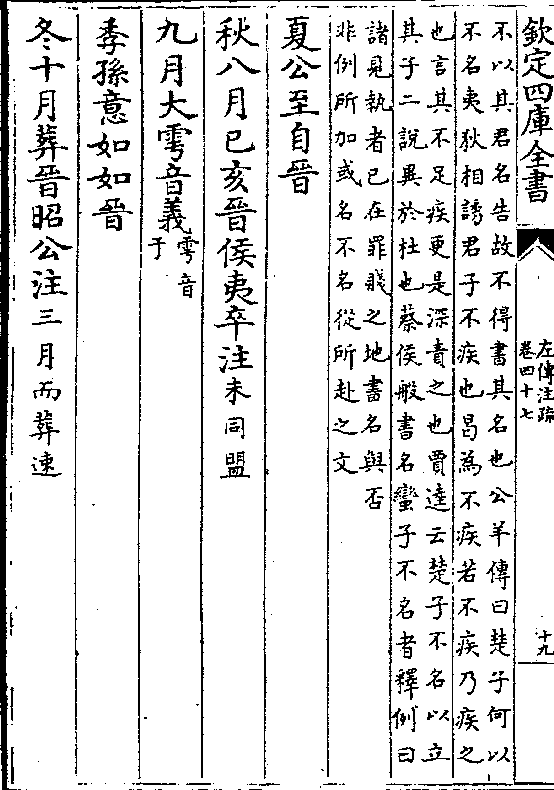 欽定四庫全書
左傳注疏
卷四十七
十九
不以其君名告故不得書其名也公羊傳曰楚子何以
不名夷狄相誘君子不疾也曷為不疾若不疾乃疾之
也言其不足疾更是深責之也賈逵云楚子不名以立
其子二說異於杜也蔡侯般書名蠻子不名者釋例曰
諸見執者已在罪賤之地書名與否
非例所加或名不名從所赴之文
夏公至自晉
秋八月己亥晉侯夷卒注未同盟
九月大雩音義雩音
于
季孫意如如晉
冬十月葬晉昭公注三月而葬速